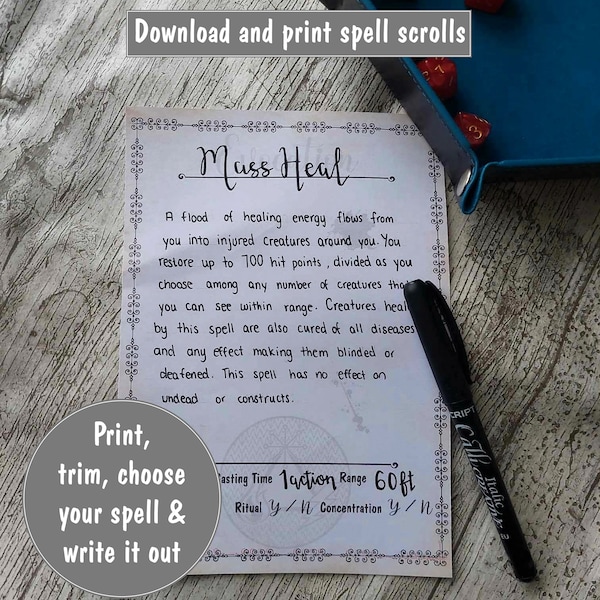 Download and print spell scrolls
Mass Heal
A flood of healing energy flows from
you into injured creatures around you. You
restore up to 700 hit points, divided as you
choose among any number of creatures tha
you can see within range. Creatures heal
by this spell are also cured of all diseases
and any effect making them blinded or
deafened. This spell has no effect on
undead or constructs.
asting Time 1action Range 60ft
Ritual Y / N Concentration Y / N
Print,
trim, choose
your spell &
write it out
SCRIPT
Italic